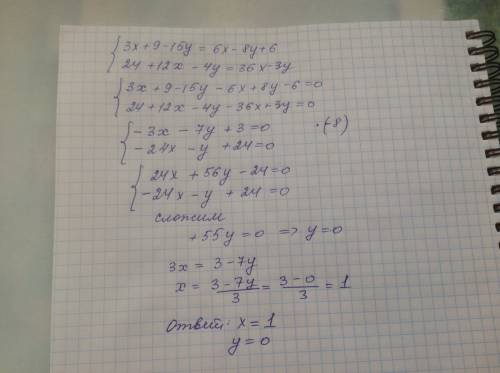 3x+9-15y=6x-8y+6
24+12x-4y=36x-3y
3x+9-15y-6x+8y-6=0
24+12x-4y-36x+3y=0
-3x-7y+3=0 ·(-8)
-24x-y+24=0
24x+56y-24=0
-24x-y+24=0
сложим
+55y=0 => y=0
3x=3-7y
x=\frac{3-7y}{3}=\frac{3-0}{3}=1
Ответ: x=1
y=0